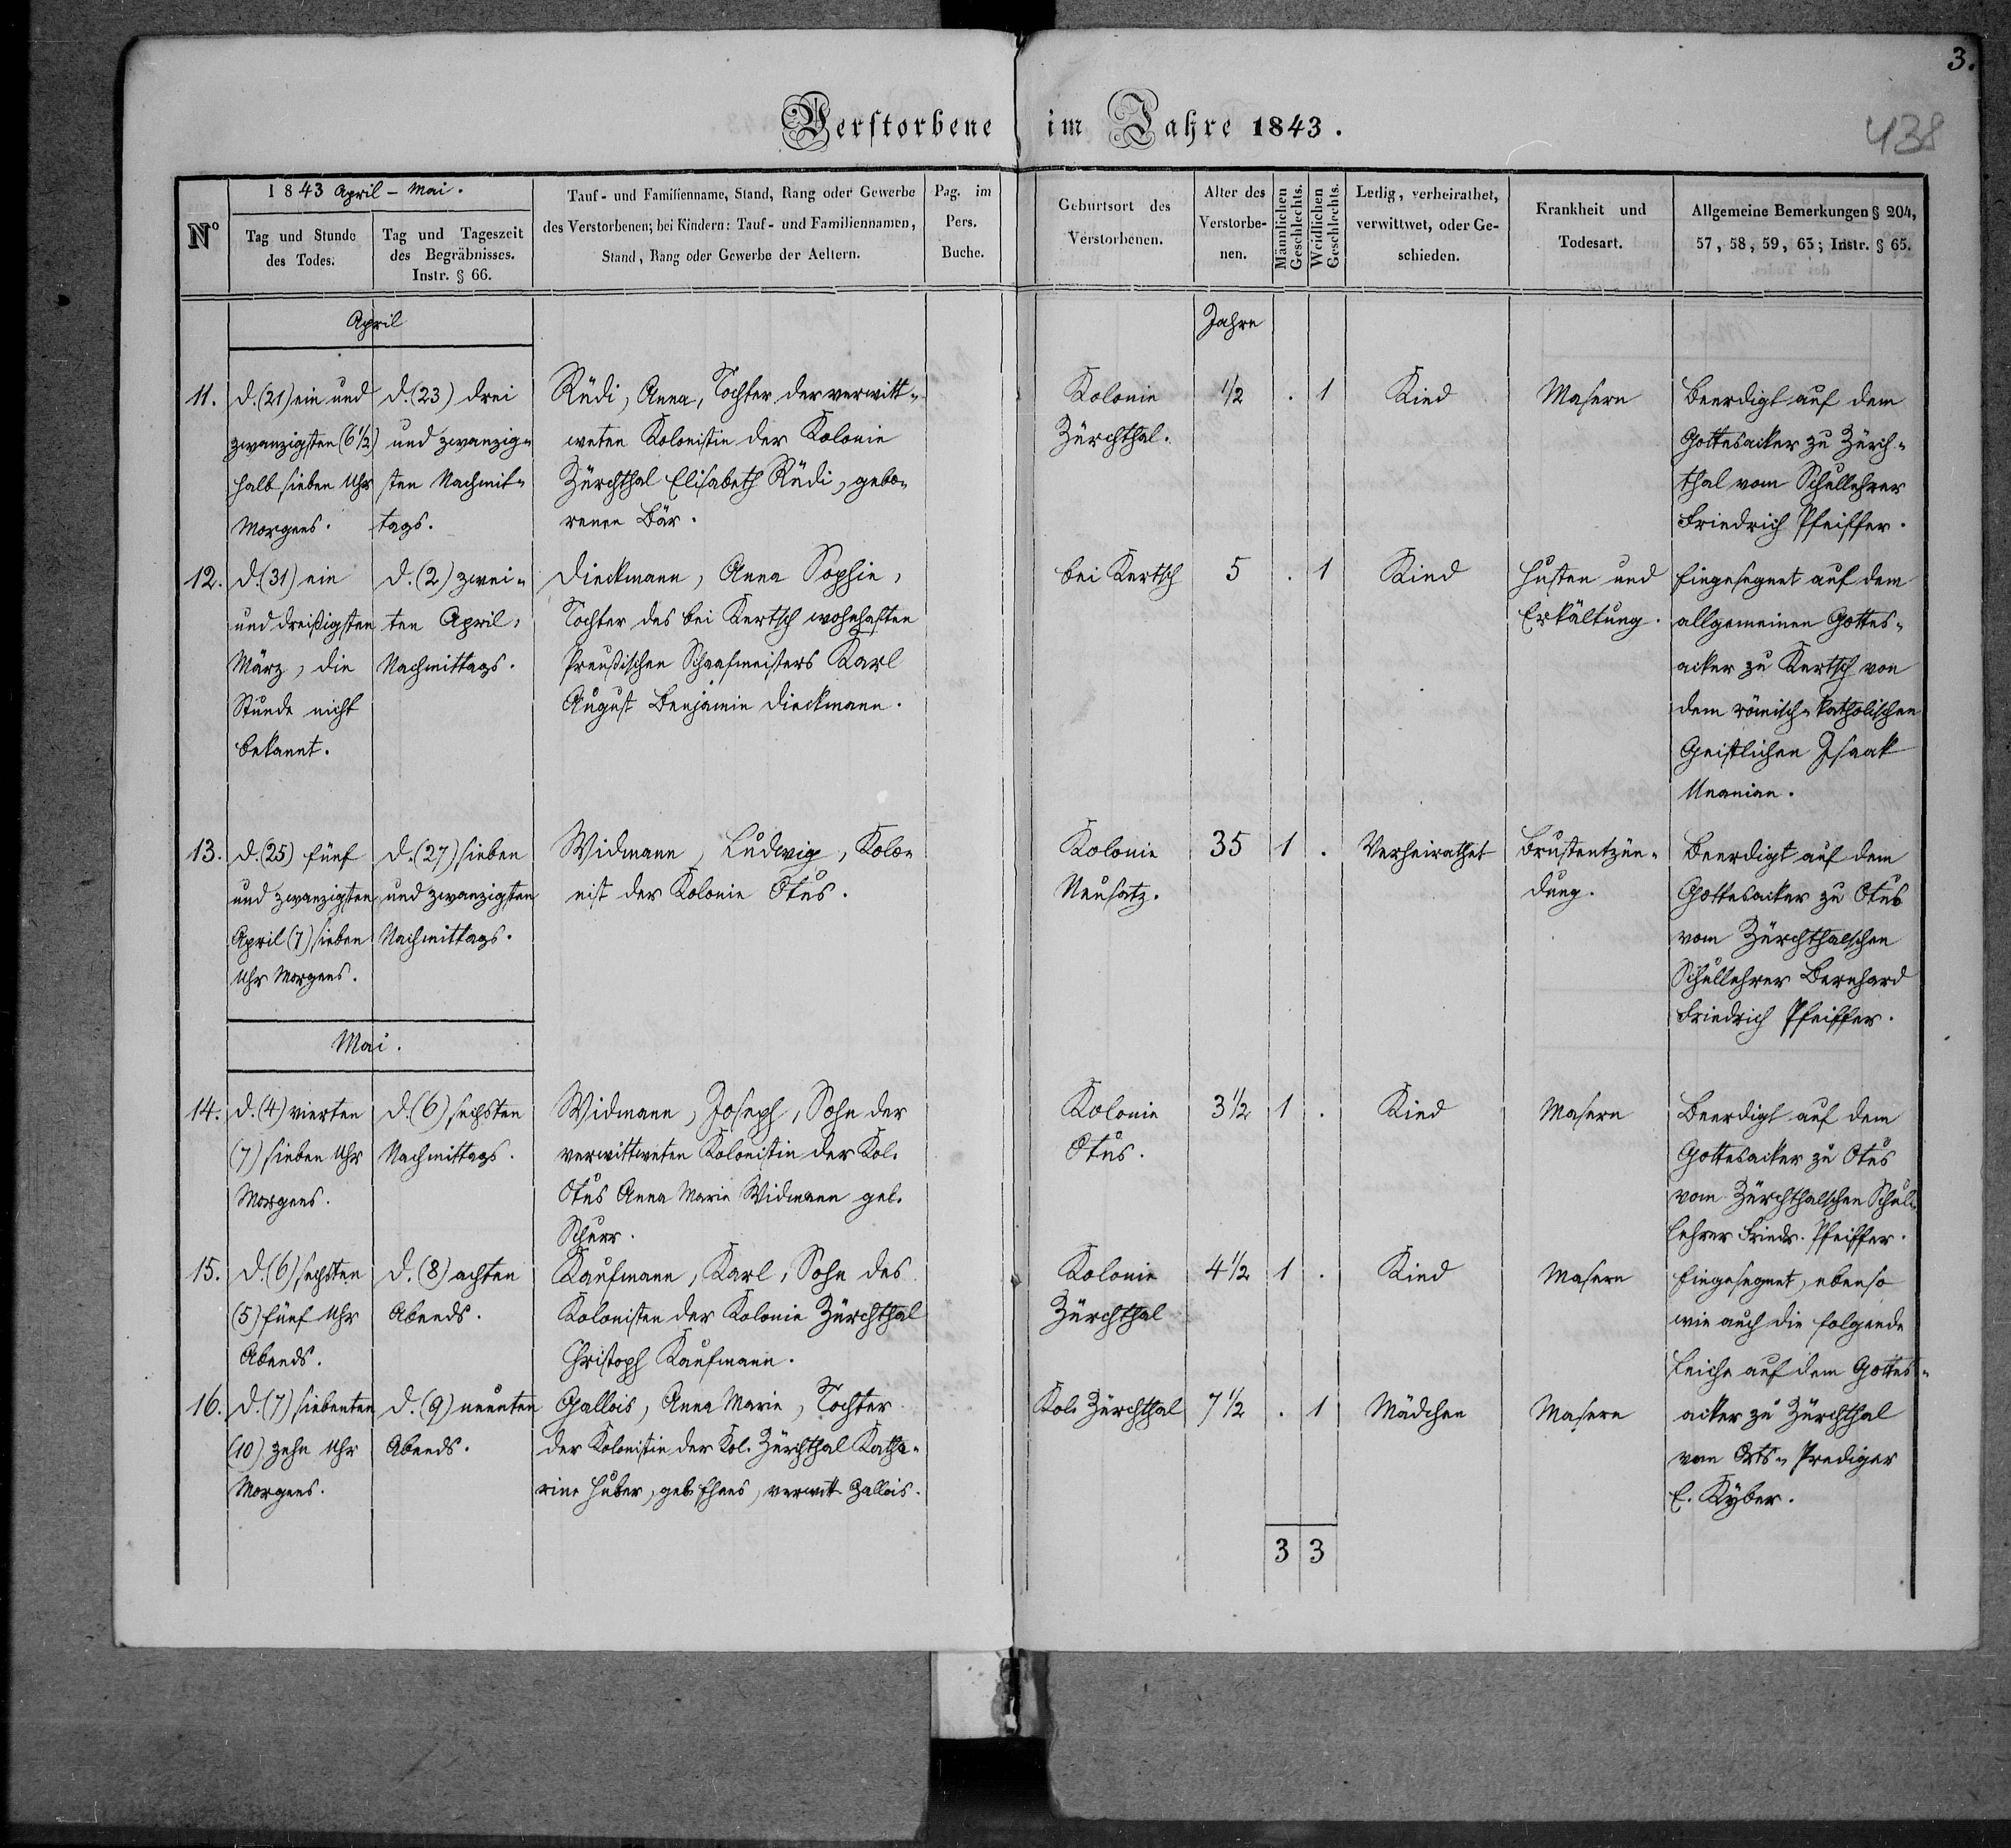 3.
438
Verstorbene im Jahre 1843.
Nº
1843 April - Mai.
Tag und Stunde
des Todes.
Tag und Tageszeit
des Begräbnisses.
Instr. § 66.
Tauf- und Familienname, Stand, Rang oder Gewerbe
des Verstorbenen; bei Kindern: Tauf- und Familiennamen,
Stand, Rang oder Gewerbe der Aeltern.
Pag. im
Pers.
Buche.
Geburtsort des
Verstorbenen.
Alter des
Verstorbe-
nen.
Männlichen
Geschlechts.
Weidlichen
Geschlechts.
Ledig, verheirathet,
verwittwet, oder Ge-
schieden.
Krankheit und
Todesart.
Allgemeine Bemerkungen § 204,
57, 58, 59, 63; Instr. § 65.
April
Jahre
11.
d. (21) ein und
zwanzigsten (6½)
halb sieben Uhr
Morgens.
d. (23) drei
und zwanzig-
sten Nachmit-
tags.
Rüdi, Anna, Tochter der verwitt-
weten Kolonistin der Kolonie
Zürchthal Elisabeth Rüdi, gebo-
renen Bär.
Kolonie
Zürchthal.
½
. 1
Kind
Masern
Beerdigt auf dem
Gottesacker zu Zürch-
thal vom Schullehrer
Friedrich Pfeiffer.
12.
d. (31) ein
und dreißigsten
März, die
Stunde nicht
bekannt.
d. (2) zwei-
ten April,
Nachmittags.
Dieckmann, Anna Sophie,
Tochter des bei Kertsch wohnhaften
Preußischen Schaafmeisters Karl
August Benjamin Dieckmann.
bei Kertsch
5
. 1
Kind
Husten und
Erkältung.
Eingesegnet auf dem
allgemeinen Gottes-
acker zu Kertsch von
dem römisch-katholischen
Geistlichen Isaak
Unanian.
13.
d. (25) fünf
und zwanzigsten
April (7) sieben
Uhr Morgens.
d. (27) sieben
und zwanzigsten
Nachmittags.
Widmann, Ludwig, Kolo-
nist der Kolonie Otus.
Kolonie
Neusatz.
35
1 .
Verheirathet
Brustentzün-
dung.
Beerdigt auf dem
Gottesacker zu Otus
vom Zürchthalschen
Schullehrer Bernhard
Friedrich Pfeiffer.
Mai.
14.
d. (4) vierten
(7) sieben Uhr
Morgens.
d. (6) sechsten
Nachmittags.
Widmann, Joseph, Sohn der
verwittweten Kolonistin der Kol.
Otus Anna Marie Widmann geb.
Schurr.
Kolonie
Otus.
3½
1 .
Kind
Masern
Beerdigt auf dem
Gottesacker zu Otus
vom Zürchthalschen Schul-
lehrer Friedr. Pfeiffer.
15.
d. (6) sechsten
(5) fünf Uhr
Abends.
d. (8) achten
Abends.
Kaufmann, Karl, Sohn des
Kolonisten der Kolonie Zürchthal
Christoph Kaufmann.
Kolonie
Zürchthal
4½
1 .
Kind
Masern
Eingesegnet, ebenso
wie auch die folgende
Leiche auf dem Gottes-
acker zu Zürchthal
vom Orts-Prediger
E. Kyber.
16.
d. (7) siebenten
(10) zehn Uhr
Morgens.
d. (9) neunten
Abends.
Gallois, Anna Marie, Tochter
der Kolonistin der Kol. Zürchthal Katha-
rine Huber, geb. verwitt. Gallois.
Kol. Zürchthal
7½
. 1
Mädchen
Masern
3 3